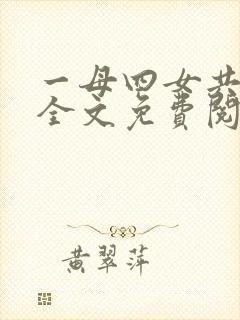 一母四女共
全文免费阅
黄翠萍